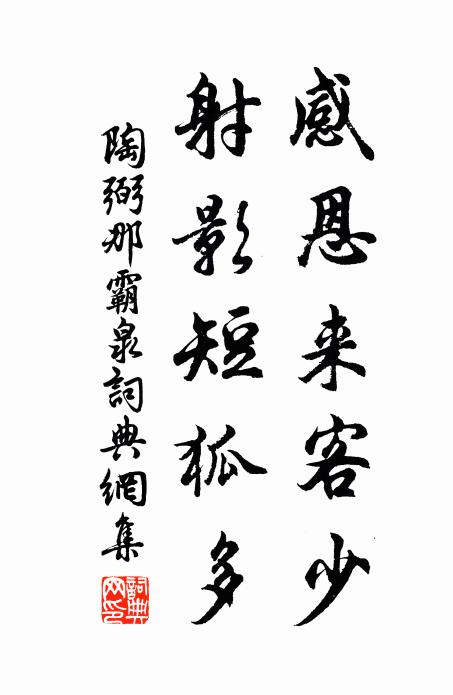 感恩来客少
射影短狐多
陶弼那霸泉詞典網集
詞典網印